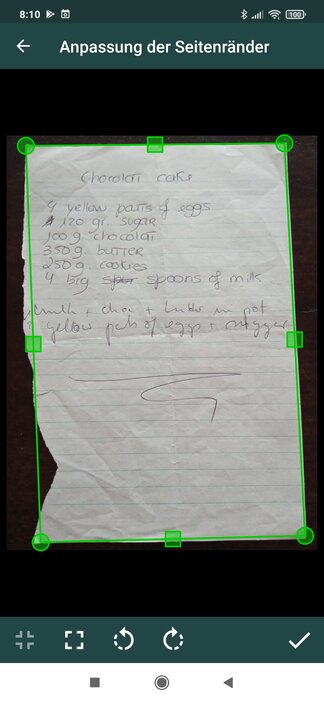 8:10
100
Anpassung der Seitenränder
Chocolat cake
4 yellow parts of eggs
120 gr. sugar
100 g. chocolat
350 g. butter
250 g. cookies
4 big spoons of milk
milk + choc + butter in pot
yellow parts of eggs +